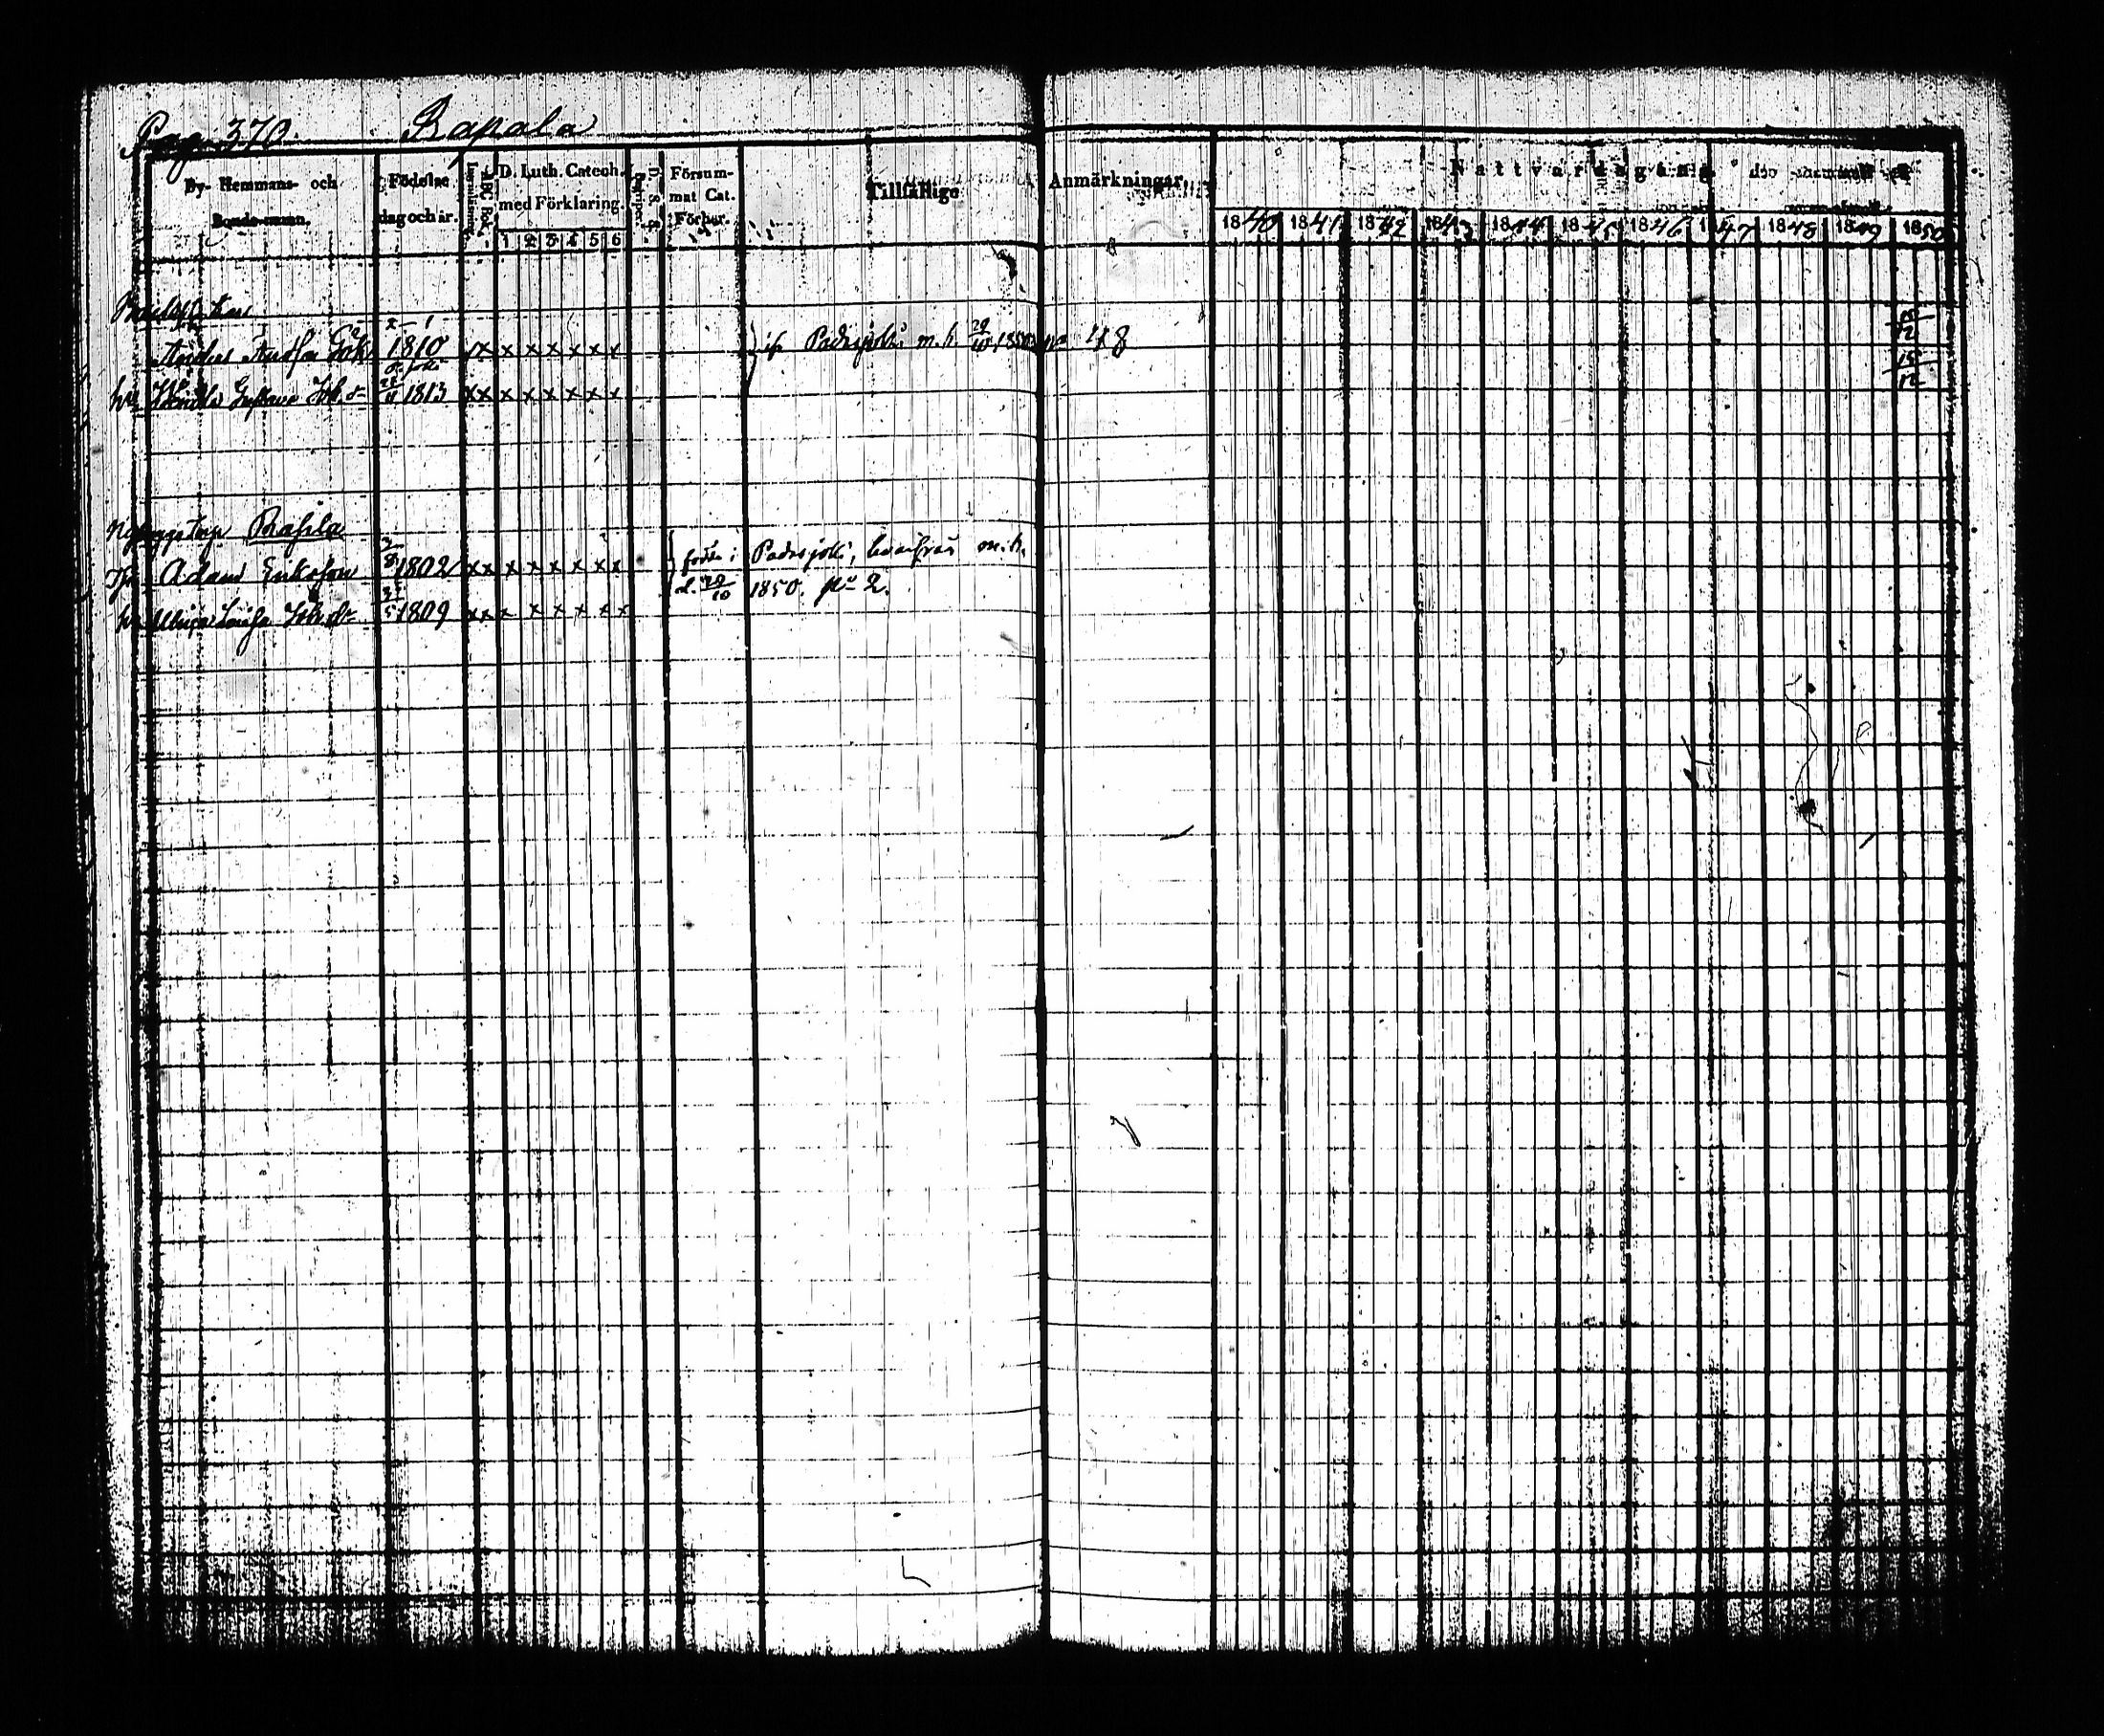 Pag. 370. Rapala
By- Hemmans- och
Bonde-namn.
Födelse
dag och år.
Innanläsning.
ABC Bok.
D. Luth. Catech.
med Förklaring.
1 2 3 4 5 6
D. S. S.
Försum-
mat Cat.
Förhör.
Tillfällige
Anmärkningar
Nattvardsgång
1840 1841 1842 1843 1844 1845 1846 1847 1848 1849 1850
Anders 1810 x x x x x x x x Padasjoki m. b. 29/10 1850 No 48 15/12
hu Gustava Joh. dr 1813 x x x x x x x x 15/12
Rapala
Adam Eriksson 1802 x x x x x x x x födde i Padasjoki, m. b.
d. 29/10 1850. No 2.
hu Ulrica Lovisa Joh. dr 1809 x x x x x x x x